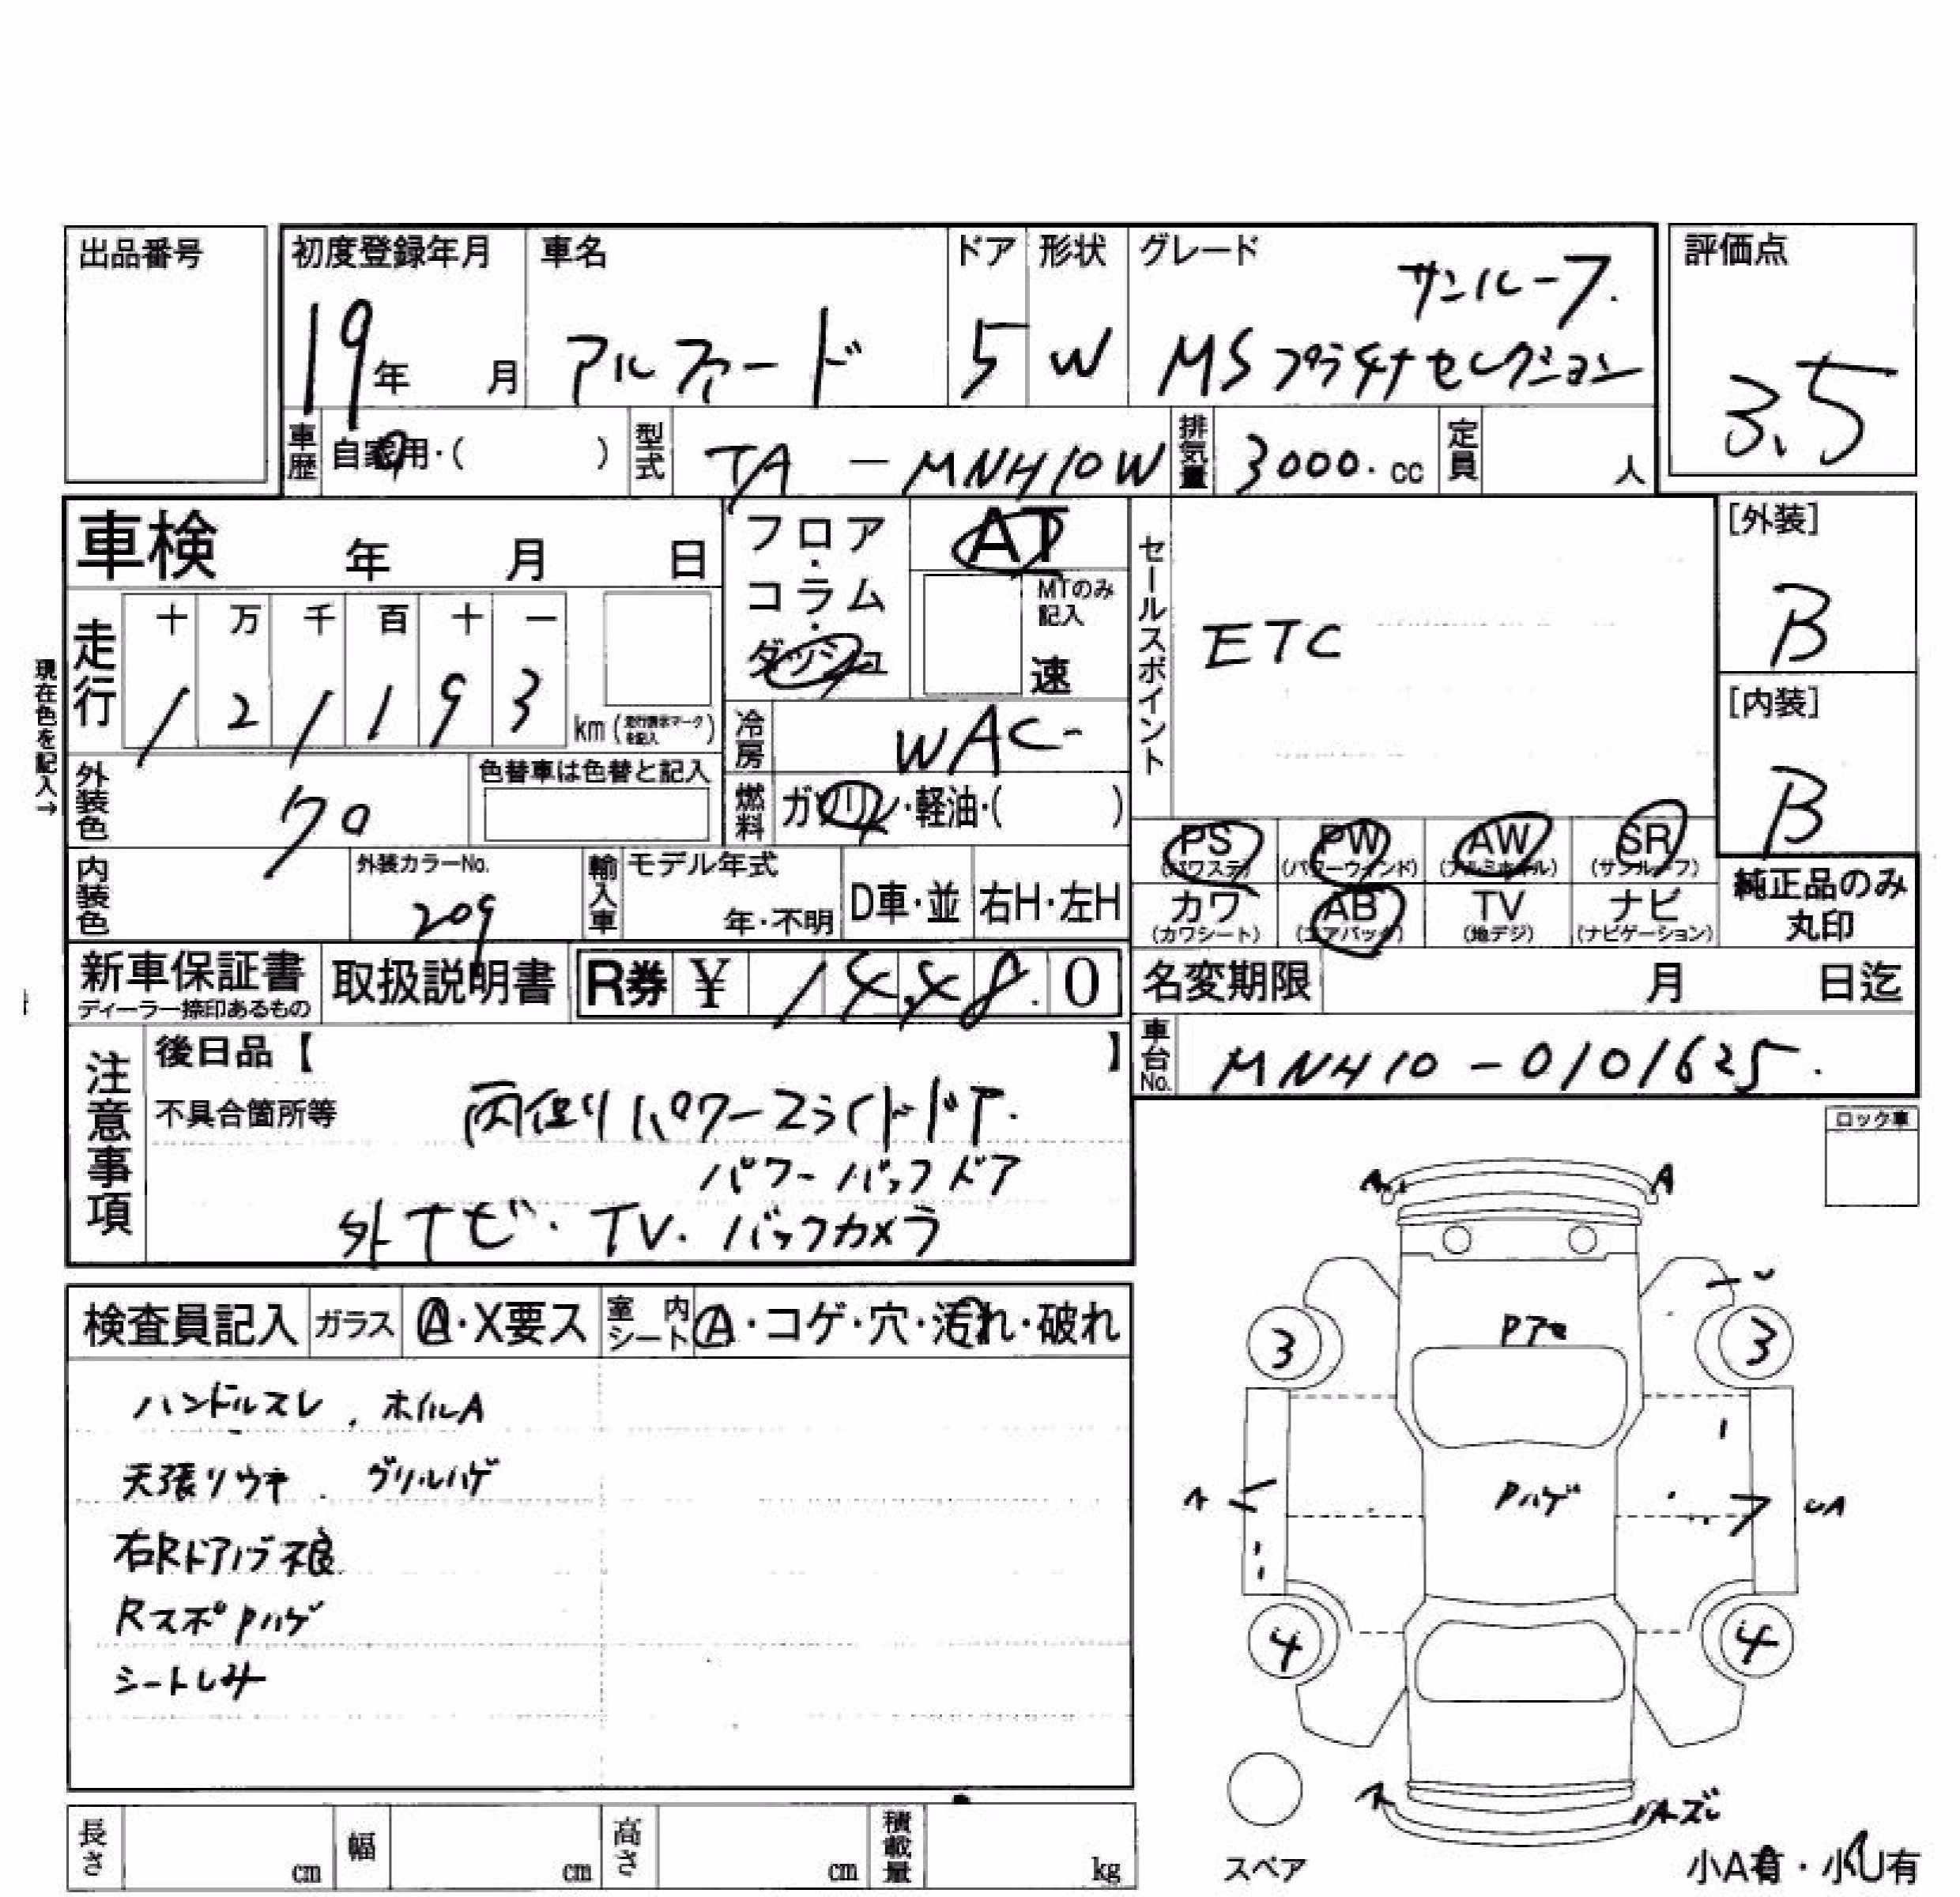 出品番号
初度登録年月 車名 ドア 形状 グレード 評価点
サンルーフ.
19年 月 アルファード 5 W MSプラチナセレクション
3.5
車歴 自家用・( ) 型式 TA - MNH10W 排気量 3000.cc 定員 人
車検 年 月 日
フロア・コラム・ダッシュ
AT
MTのみ記入
速
セールスポイント
ETC
[外装]
B
現在色を記入→
走行 十 万 千 百 十 一
1 2 1 1 9 3 km (走行表示マークを記入)
冷房 WAC-
[内装]
B
外装色 クロ
色替車は色替と記入
燃料 ガソリン・軽油・( )
PS (パワステ) PW (パワーウインド) AW (アルミホイル) SR (サンルーフ)
カワ (カワシート) AB (エアバック) TV (地デジ) ナビ (ナビゲーション)
純正品のみ丸印
内装色 外装カラーNo. 209
輸入車 モデル年式 年・不明 D車・並 右H・左H
新車保証書 ディーラー捺印あるもの
取扱説明書 R券 ¥ 1 4,4 8.0
名変期限 月 日迄
車台No. MNH10-0101625.
注意事項
後日品【 】
不具合箇所等
両側パワースライドドア.
パワーバックドア
外ナビ・TV.バックカメラ
ロック車
検査員記入 ガラス A・X要ス 室内シート A・コゲ・穴・汚れ・破れ
ハンドルスレ. ホイルA
天張リウキ. グリルハゲ
右Rドアノブ不良
RスポPハゲ
シートしみ
A A
3 Pアセ 3
A Pハゲ UA
4 4
Aズレ
スペア
小A有・小U有
長さ cm 幅 cm 高さ cm 積載量 kg